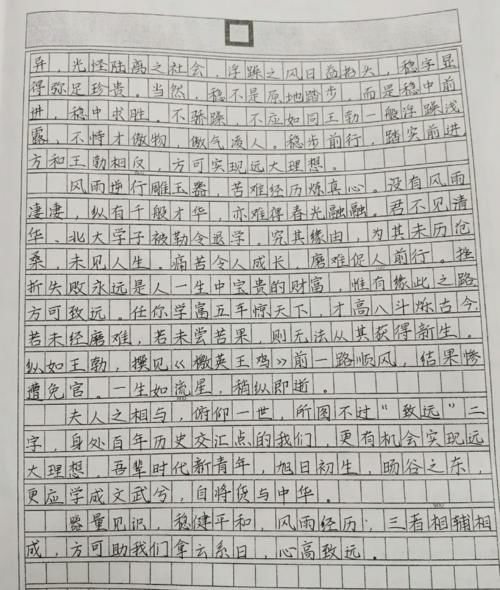 异，光怪陆离之社会，浮躁之风日益抬头，稳字显
得弥足珍贵。当然，稳不是原地踏步，而是稳中前
进，稳中求胜。不骄躁，不应如同王勃一般浮躁浅
露，不恃才傲物，傲气凌人。稳步前行，踏实前进
方和王勃相仅，方可实现远大理想。
风雨坐行雕玉器，苦难经历炼真心。没有风雨
凄凄，纵有千般才华，亦难得春光融融。君不见清
华、北大学子被勒令退学。究其缘由，为其未历沧
桑，未见人生。痛苦令人成长，磨难促人前行。挫
折失败永远是人一生中宝贵的财富，惟有缘此之路
方可致远。任你学富五车惊天下，才高八斗烁古今
若未经磨难，若未尝苦果，则无法从其获得新生。
纵如王勃，撰见《檄英王鸡》前一路顺风，结果惨
遭免官。一生如流星，稍纵即逝。
夫人之相与，俯仰一世，所图不过“致远”二
字，身处百年历史交汇点的我们，更有机会实现远
大理想，吾辈时代新青年，旭日初生，旸谷之东，
更应学成文武兮，自将货与中华。
器量见识，稳健平和，风雨经历；三者相辅相
成，方可助我们拿云系日，心高致远。